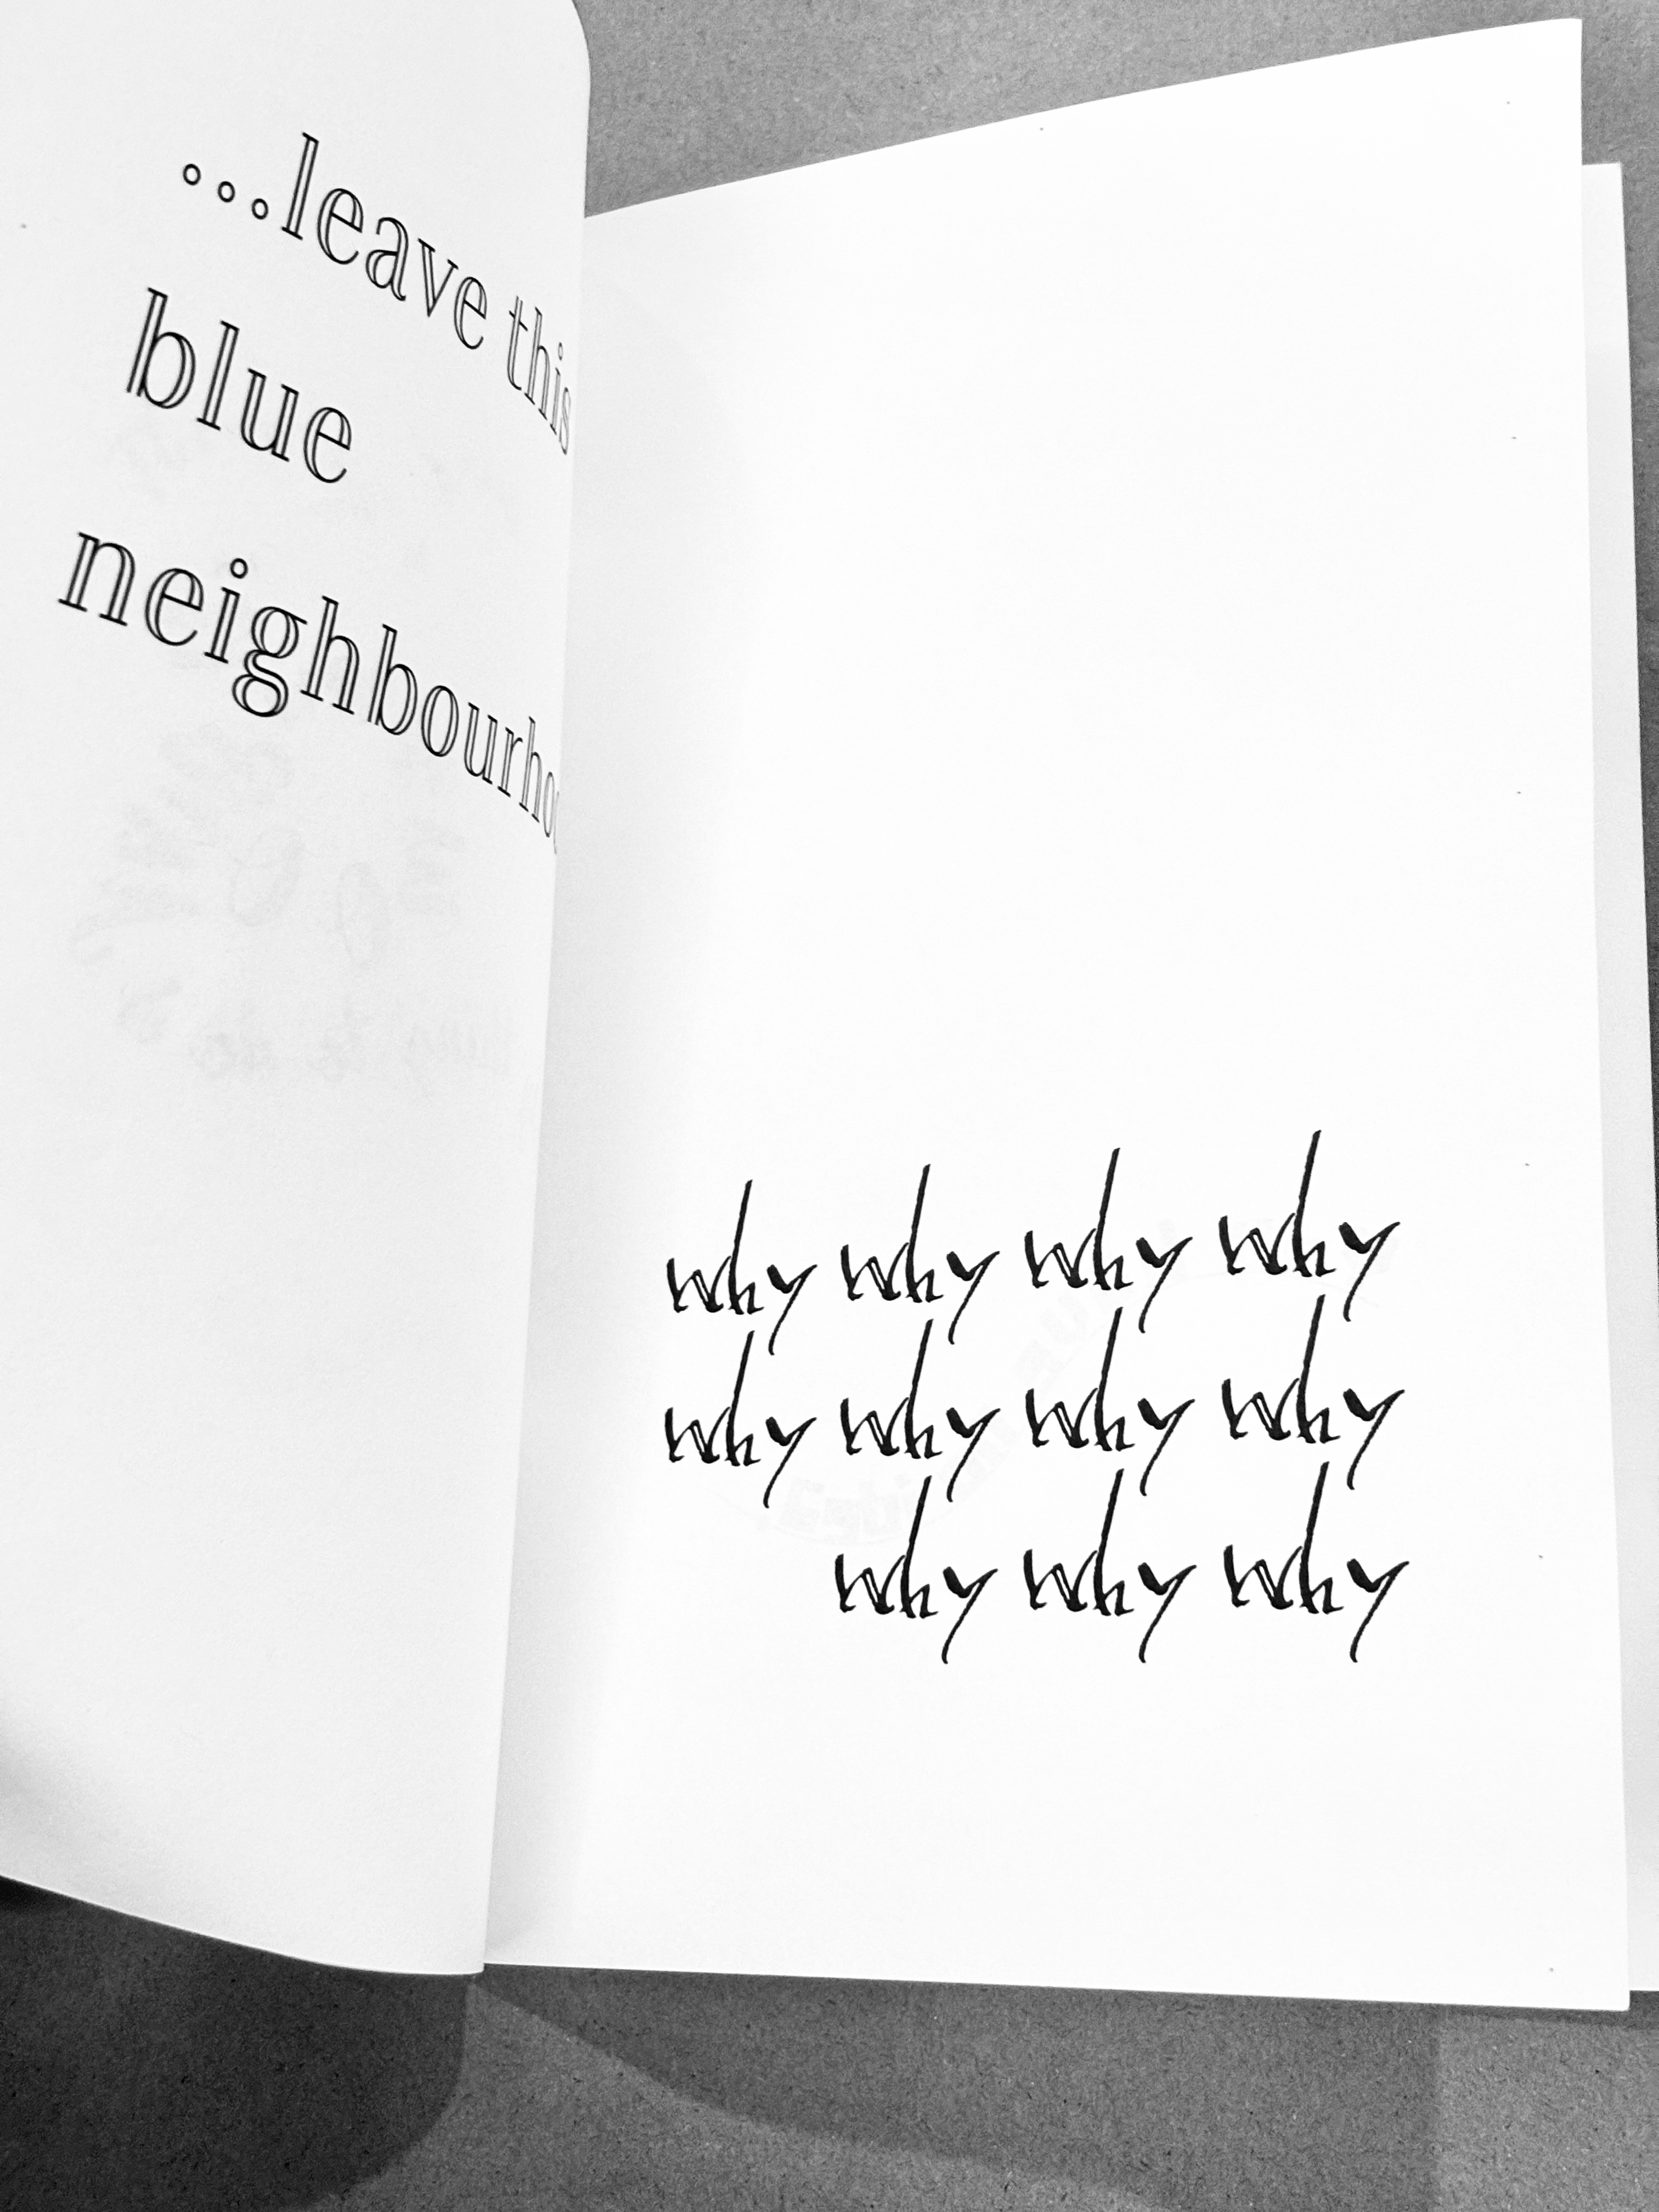 ...leave this
blue
why why why why
why why why why
why why why